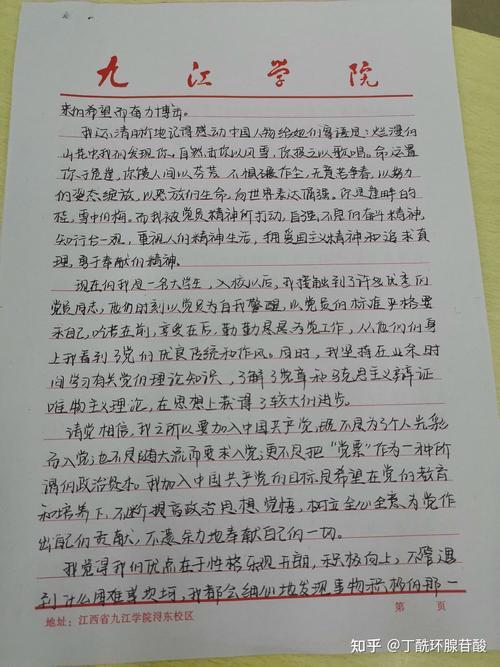 九江学院
来的希望而奋力博击。
我还清晰地记得感动中国人物给她们写语是：烂漫的
山花中我们发现你，自然击你以风雪，你报之以歌唱。命运置
你于危崖，你馈人间以芬芳。不惧碾作尘，无意苦争春，以努力
们姿态绽放，以怒放的生命，向世界表达倔强。你是崖畔的
桂，雪中的梅。而我被党员精神所打动，自强不息的奋斗精神，
知行合一观，重视人们精神生活，拥爱国主义精神和追求真
理，勇于奉献们精神。
现在的我是一名大学生，入校以后，我接触到了许多优秀的
党员同志，他们时刻以党员为自我警醒，以党员的标准严格要
求自己，吃苦在前，享受在后，勤勤恳恳为党工作，从他们们身
上我看到了党的优良传统和作风。同时，我坚持在业余时
间学习有关党的理论知识，了解了党章和马克思主义辩证
唯物主义理论，在思想上获得了较大们进步。
请党相信，我之所以要加入中国共产党，既不是为了个人光彩
而入党；也不是随大流而要求入党；更不是把“党票”作为一种所
谓们政治资本。我加入中国共产党的目标是希望在党的教育
和培养下，不断提高政治思想觉悟，树立全心全意、为党作
出自己们贡献，不遗余力地奉献自己的一切。
我觉得我们优点在于性格乐观开朗，积极向上，不管遇
到什么困难或坎坷，我都会细心地发现事物积极的那一
地址：江西省九江学院浔东校区 第 页
知乎 @丁酰环腺苷酸